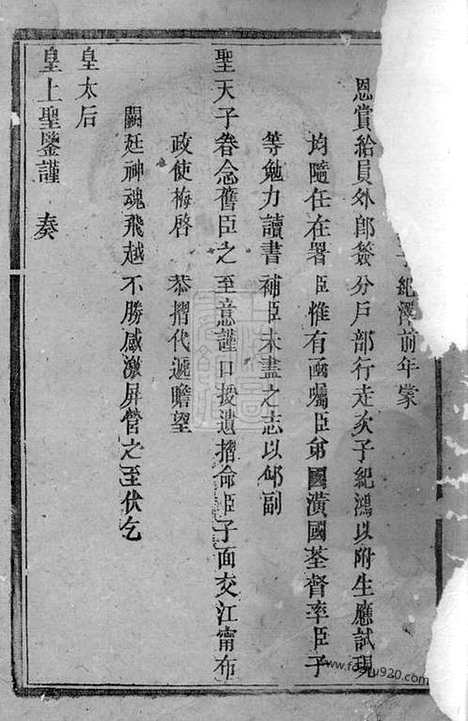 子紀澤前年蒙
恩賞給員外郎簽分戶部行走次子紀鴻以附生應試現
均隨任在署臣惟有函囑臣弟國潢國荃督率臣子
等勉力讀書補臣未盡之志以仰副
聖天子眷念舊臣之至意謹口授遺摺命臣子面交江甯布
政使梅啓 恭摺代遞瞻望
闕廷神魂飛越不勝感激屏營之至伏乞
皇太后
皇上聖鑒謹 奏
www.fozhu920.com